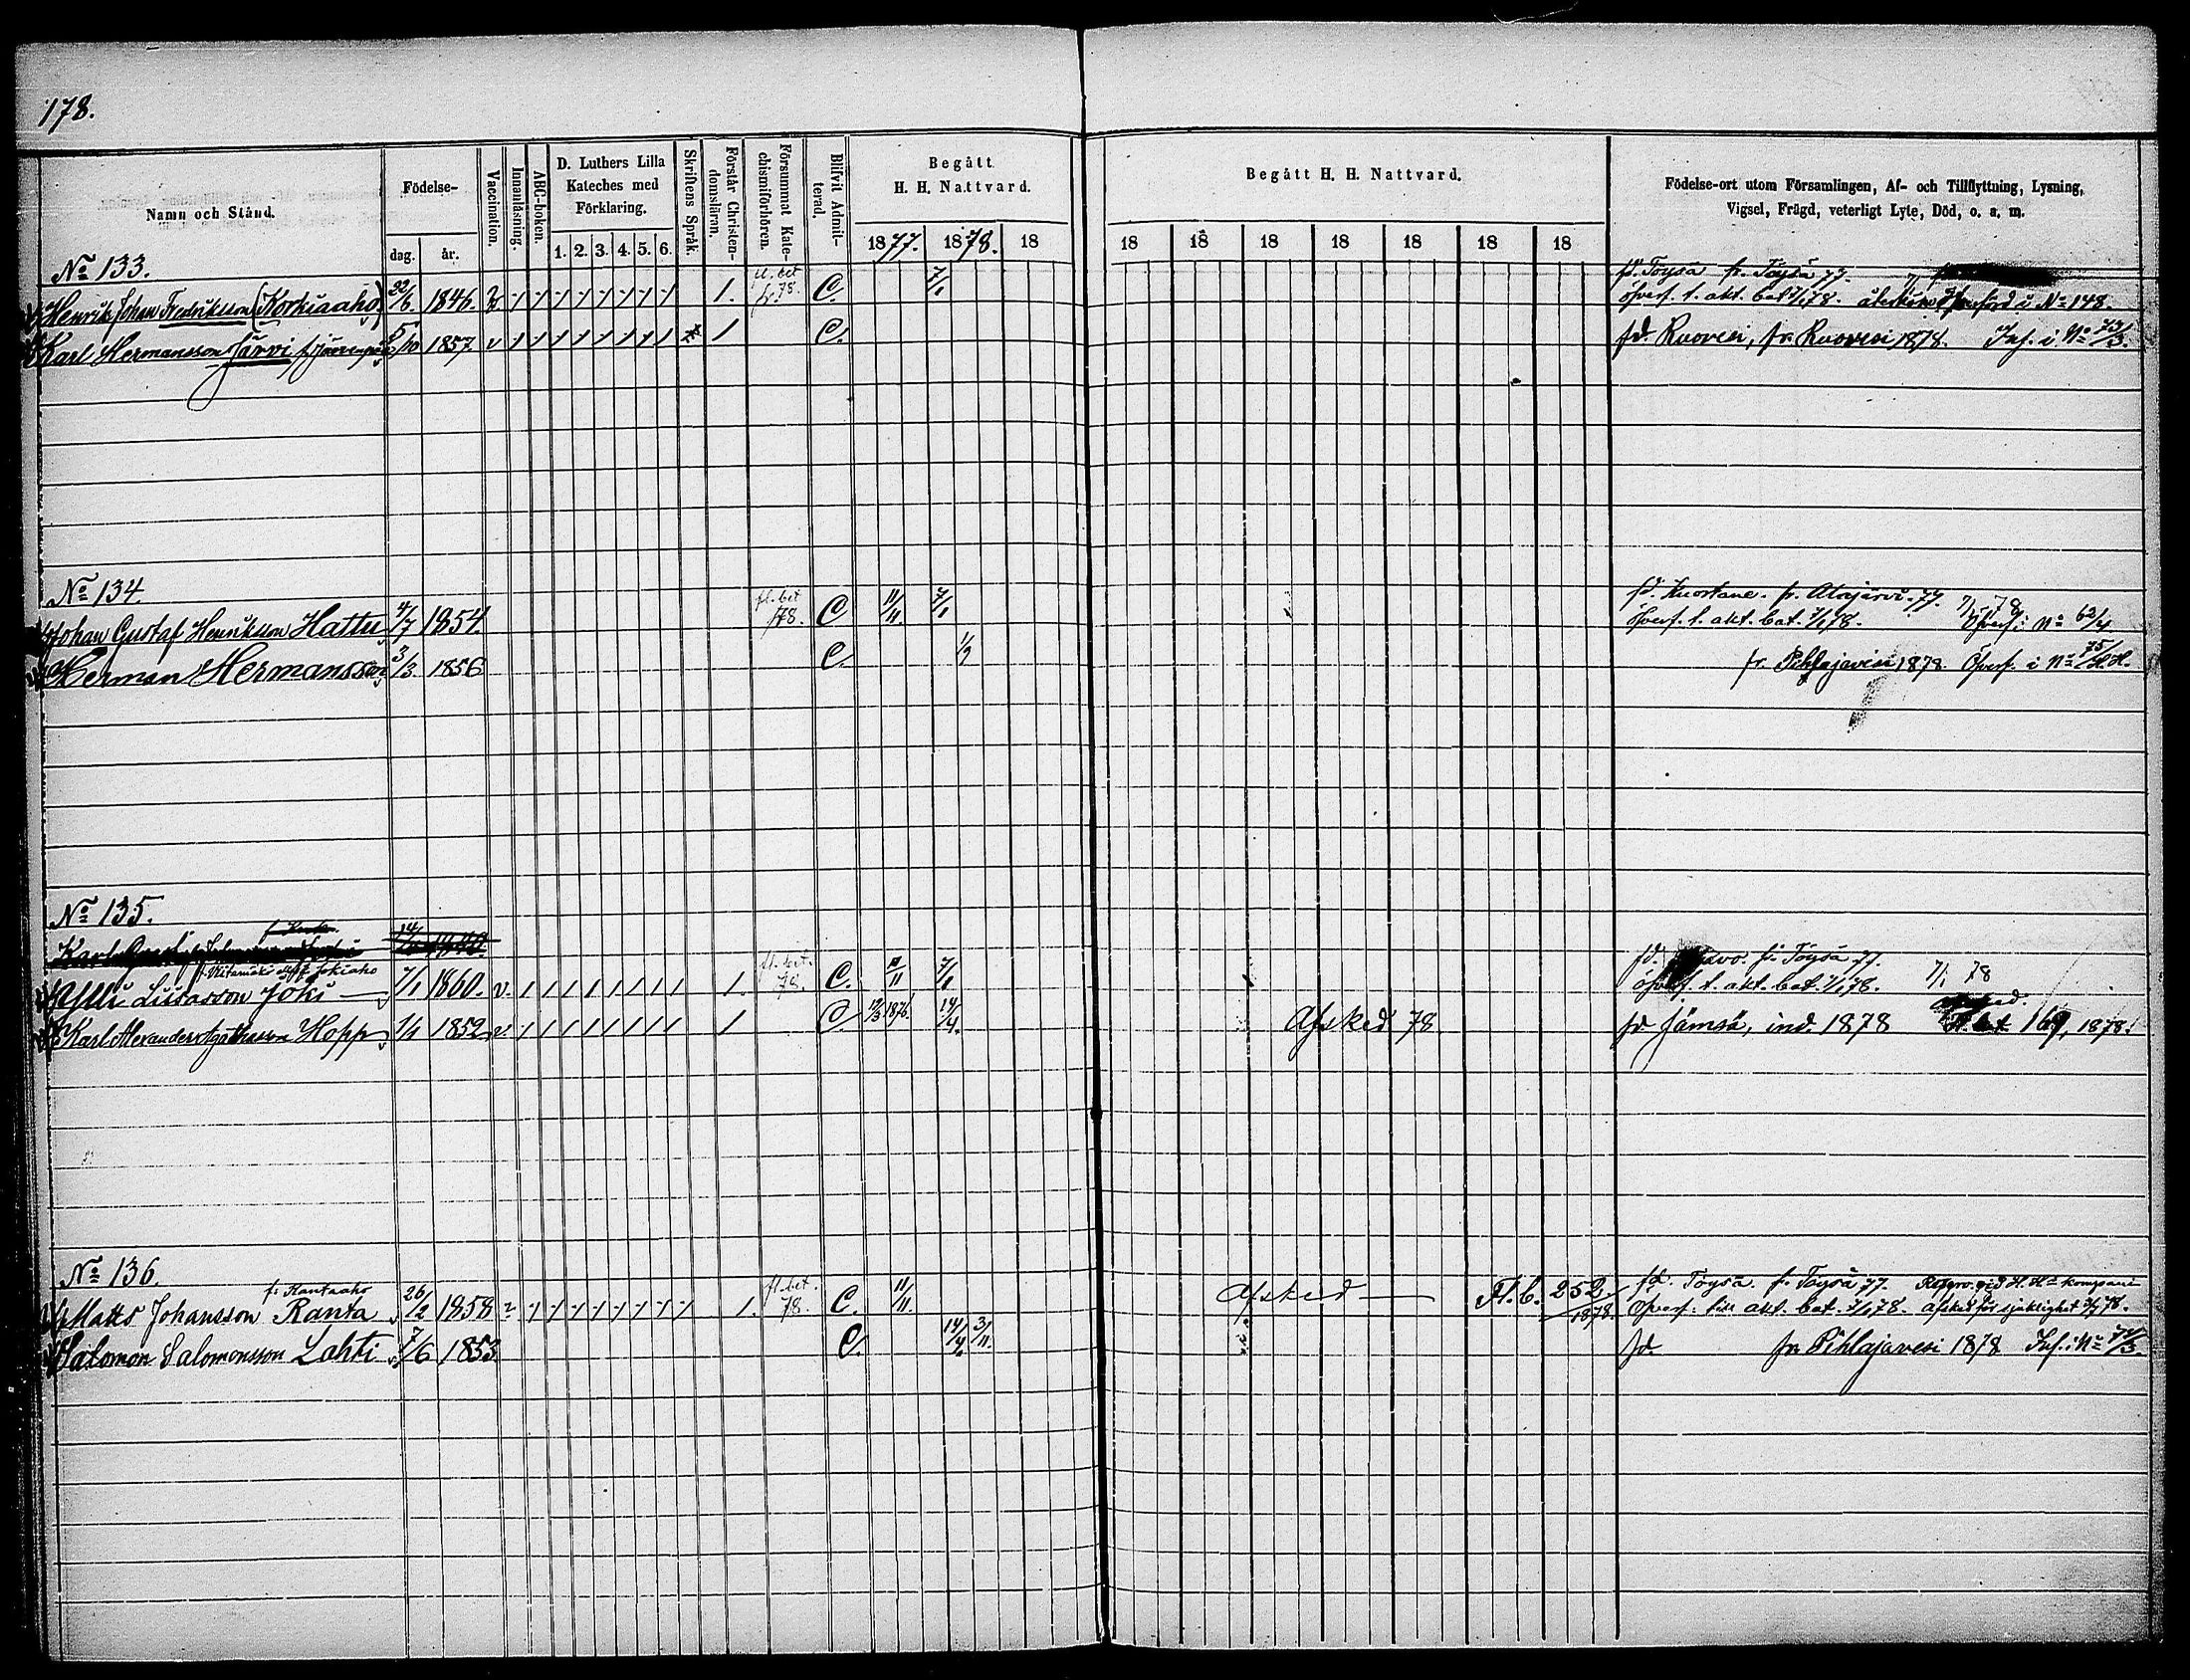 178.
Namn och Stånd.
Födelse-
dag.
år.
Vaccination.
Innanläsning.
ABC-boken.
D. Luthers Lilla
Kateches med
Förklaring.
1. 2. 3. 4. 5. 6.
Skriftens Språk.
Förstår Christen-
domsläran.
Försummat Kate-
chismiförhören.
Blifvit Admit-
terad.
Begått
H. H. Nattvard.
1877. 1878. 18
Begått H. H. Nattvard.
18 18 18 18 18 18 18
Födelse-ort utom Församlingen, Af- och Tillflyttning, Lysning,
Vigsel, Frägd, veterligt Lyte, Död, o. a. m.
No 133.
Henrik Johan Fredriksson (Korkiaaho) 22/6 1846. 1. 78. C. 7/1
fd. Toysä fr. Töysä 77.
öfverf. t. akt. bat. 7/1 78. No 148
Karl Hermansson Järvi 5/10 1857 v 1 C. fd. Ruovesi, fr. Ruovesi 1878. Inf. i No 73/3.
No 134.
Johan Gustaf Henriksson Hattu 4/7 1854. fl. bet 78. C 11/11. 7/1
fd. Kuortane. fr. Alajärvi. 77. 7/1 78
öfverf. t. akt. bat. 7/1 78. Öfverf. i No 63/4
Herman Hermansson 3/3 1856 C. 1/9 fr. Pihlajavesi 1878. Öfverf. i No 75/H.H.
No 135.
Karl
Jokiaho
Lucasson Joki 7/1 1860. v. 1. fl. bet. 78. C. 11/11 7/1
fr. Töysä 77.
öfverf. t. akt. bat. 7/1 78. 7/1 78
afsked.
Karl Alexander Agathasson Hopp 1/1 1852 v. 1 C. 17/3 1876. 14/4. Afsked 78 fr Jämsä, ind. 1878 169, 1878.
No 136.
f. Rantaaho
Matts Johansson Ranta 26/2 1858 1. fl. bet. 78. C. 11/11. Afsked Fl. b. 252/1878.
fd. Toysä. fr. Toysä 77. kompani
Öfverf. till akt. bat. 7/1 78. afsked för sjuklighet 78.
Salomon Salomonsson Lahti 7/6 1853 C. 14/4. 3/11. fd. fr. Pihlajavesi 1878 Inf. i No 71/3.